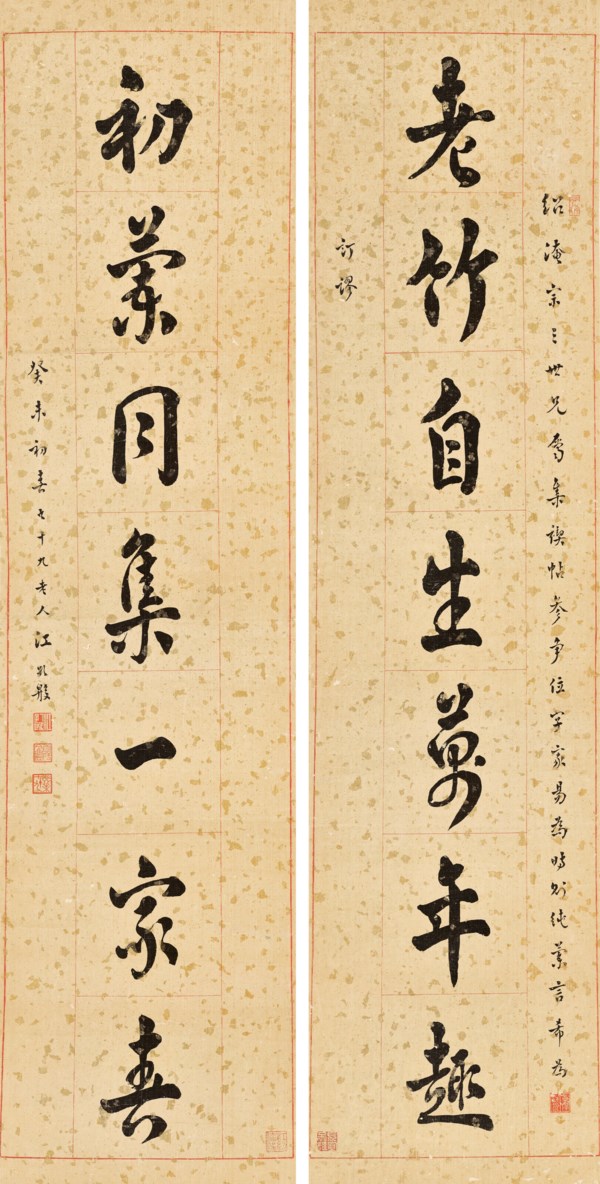 紹淹宗三世兄屬集禊帖參爭位字家易為時則純蘭言希為
老竹自生萬年趣
訂謬
初蘭同集一家春
癸未初春七十九老人江孔殷